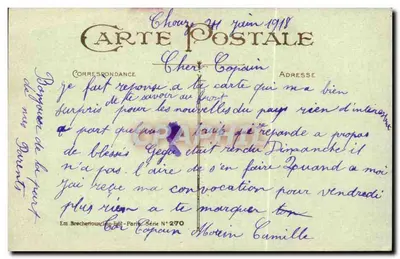 Thouze 24 juin 1918
CARTE POSTALE
Cher Copain
CORRESPONDANCE
ADRESSE
je fait reponse a ta carte qui m'a bien
surpris de te savoir au front
pour les nouvelles du pays rien d'interessant
a part quelques je réponde a propos
de blessés Gégé était rendu Dimanche il
n'a pas l'aire de s'en faire Quand a moi
j'ai reçu ma convocation pour vendredi
plus rien a te marquer ton
Cher Copain Morin Camille
Bonjour de la part
de mes
Parents
Série N° 270